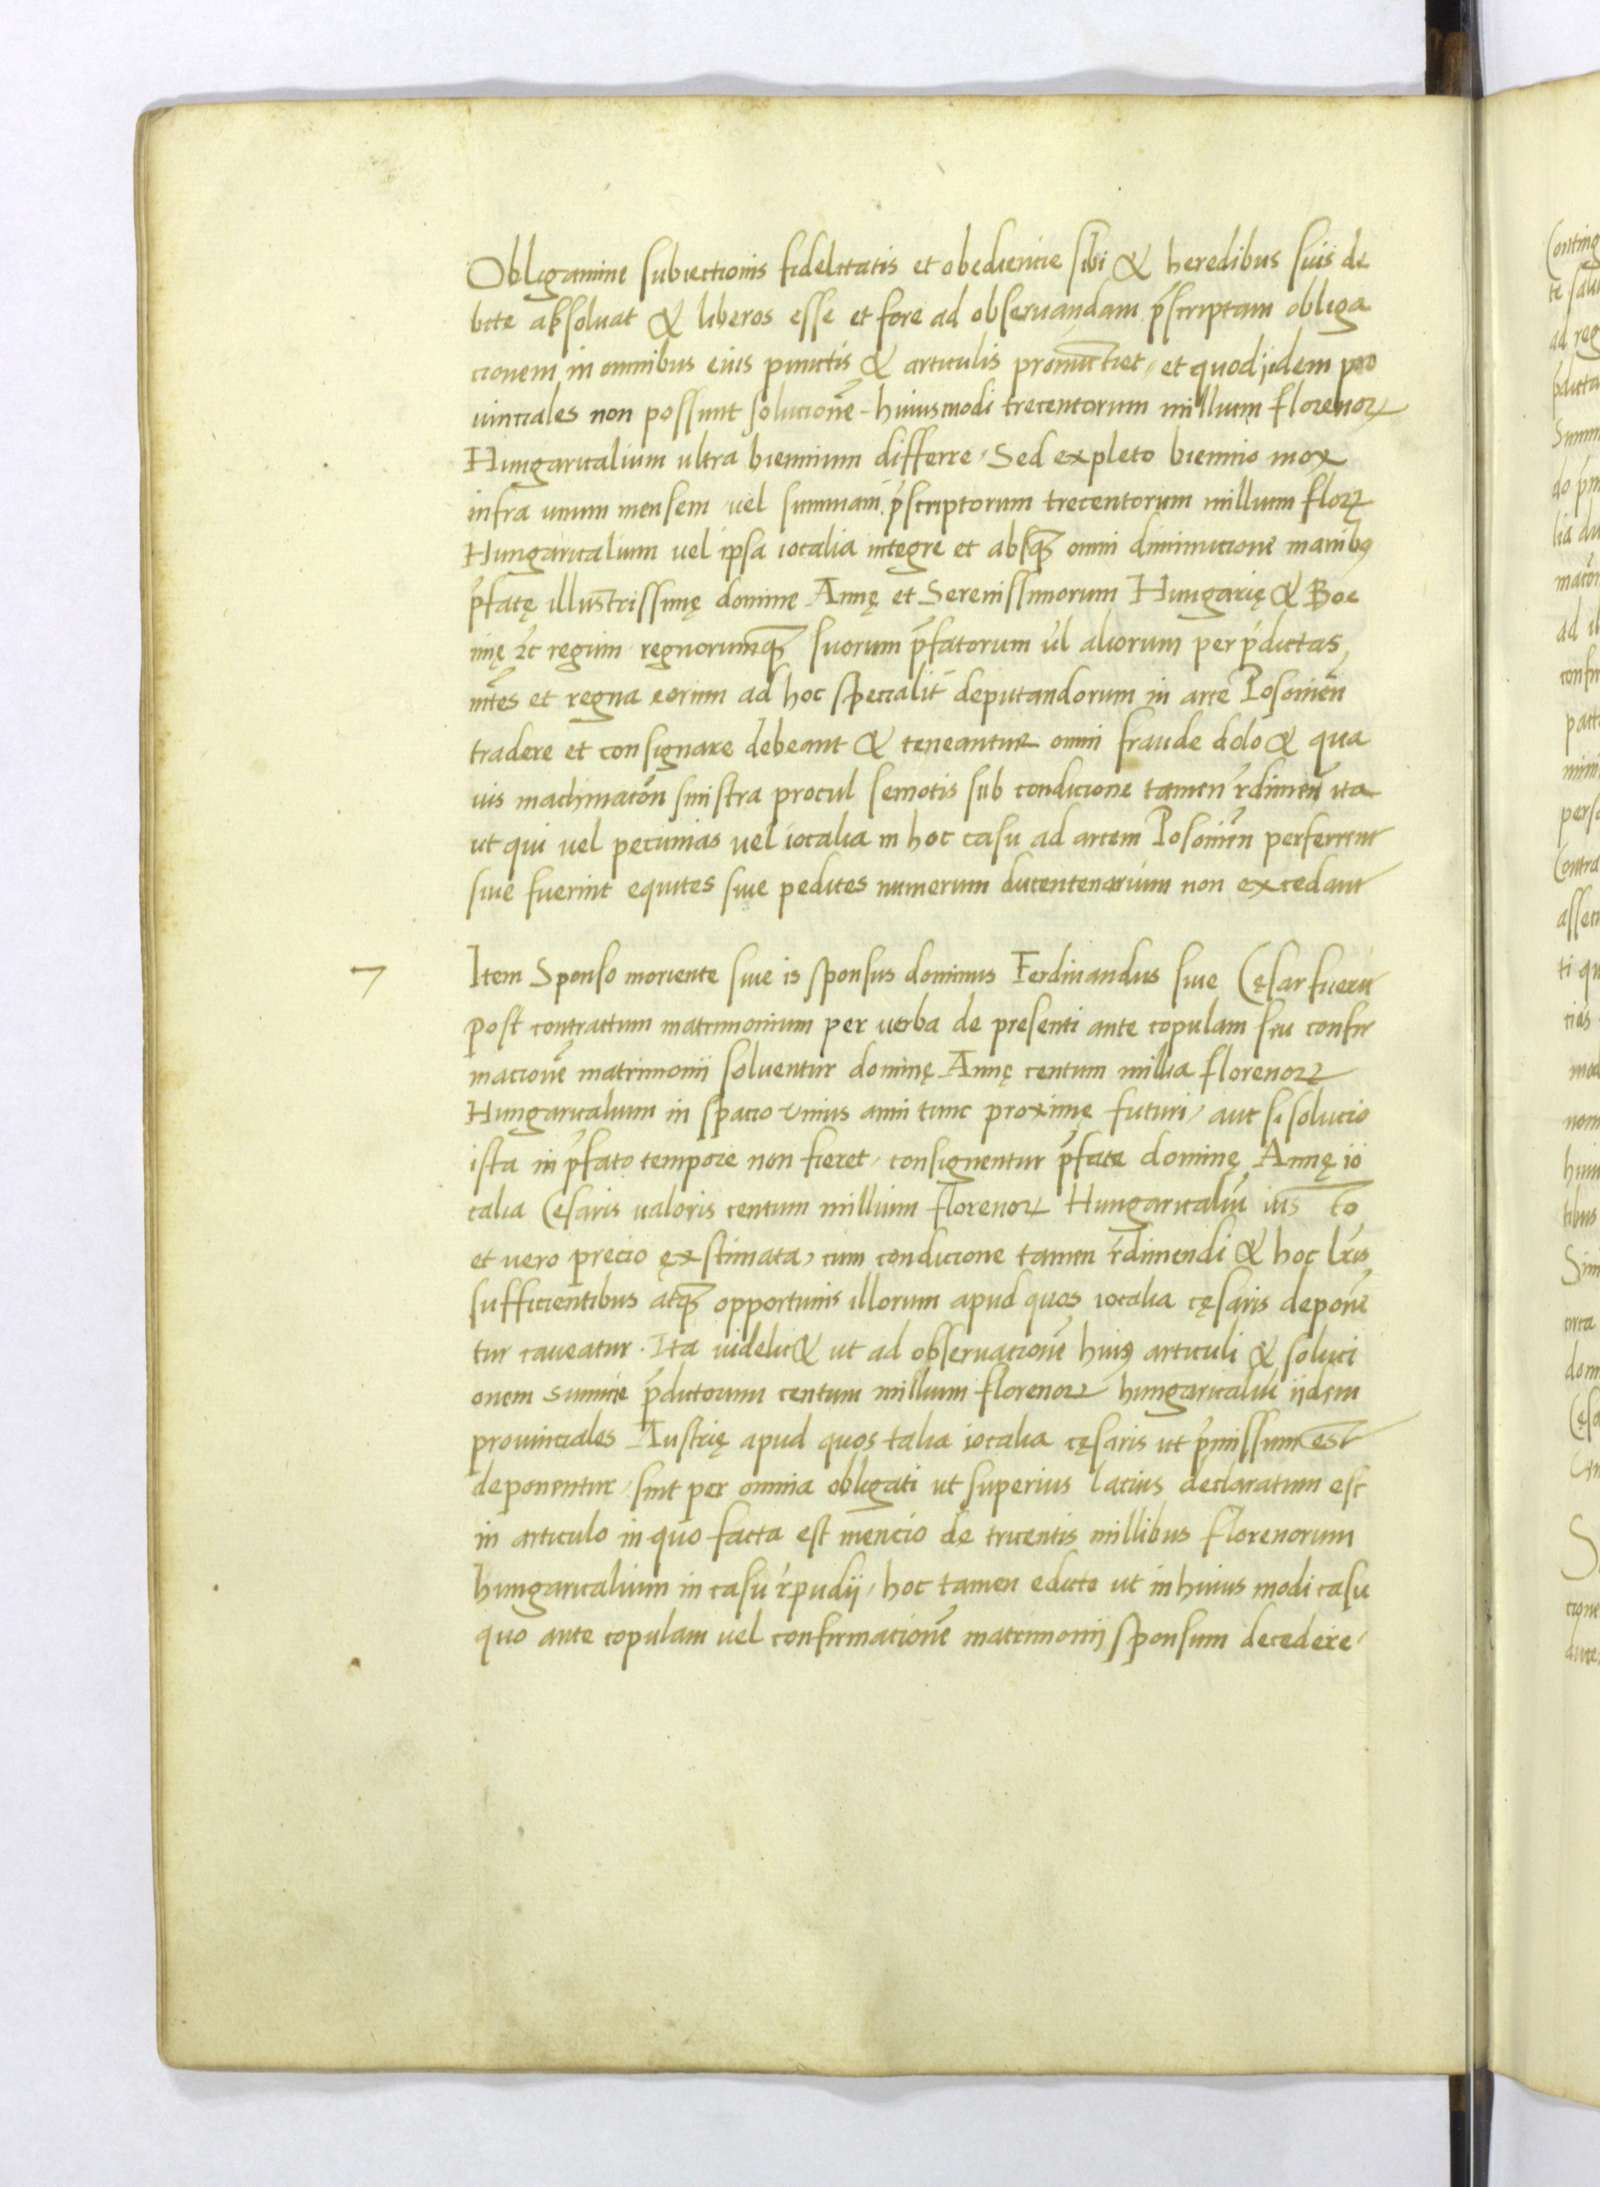 Obligamine subiectionis fidelitatis et obediencie sibi & heredibus suis de
bite absoluat & liberos esse et fore ad obseruandam p̄scriptam obliga
cionem in omnibus eius punctis & articulis pronūctiet, et quod iidem pro
uinciales non possunt solucionē huiusmodi trecentorum millium florenoꝝ
Hungaricalium ultra biennium differre, Sed expleto biennio mox
infra unum mensem vel summam p̄scriptorum trecentorum millium floꝝ
Hungaricalium vel ipsa iocalia integre et absqꝫ omni diminucione manibꝰ
p̄fatę illustrissimę domine Annę et Serenissimorum Hungarię & Boe
mię ⁊c regum regnorumqꝫ suorum p̄fatorum vl̄ aliorum per p̄dictas
mtēs et regna eorum ad hoc specialit̄ deputandorum in arce Posonień
tradere et consignare debeant & teneantur omni fraude dolo & qua
uis machinacōn sinistra procul semotis sub condicione tamen r̄dimen̄ ita
ut qui vel pecunias vel iocalia in hoc casu ad arcem Posonień perferrent
siue fuerint equites siue pedites numerum ducentenarium non excedant
7 Item Sponso moriente siue is sponsus dominus Ferdinandus siue Cęsar fuerit
post contractum matrimonium per verba de presenti ante copulam seu confir
macionē matrimonii soluentur dominę Annę centum millia florenoꝝ
Hungaricalium in spacio vnius anni tunc proximę futuri, aut si solucio
ista in p̄fato tempore non fieret, consignentur p̄fate dominę Annę io
calia Cesaris valoris centum millium florenoꝝ Hungaricaliū ius to
et vero precio ęxstimata, cum condicione tamen r̄dimendi & hoc lr̄is
sufficientibus atqꝫ opportunis illorum apud quos iocalia cęsaris deponē
tur caueatur. Ita videlic& ut ad obseruacionē huiꝰ articuli & soluci
onem summe p̄dictorum centum millium florenoꝝ hungaricaliū iidem
prouinciales Austrię apud quos talia iocalia cęsaris ut p̄missum est
deponentur, sint per omnia obligati ut superius lacius declaratum est
in articulo in quo facta est mencio de tricentis millibus florenorum
hungaricalium in casu r̄pudii, hoc tamen edicto ut in huius modi casu
quo ante copulam vel confirmacionē matrimonii sponsum decedere